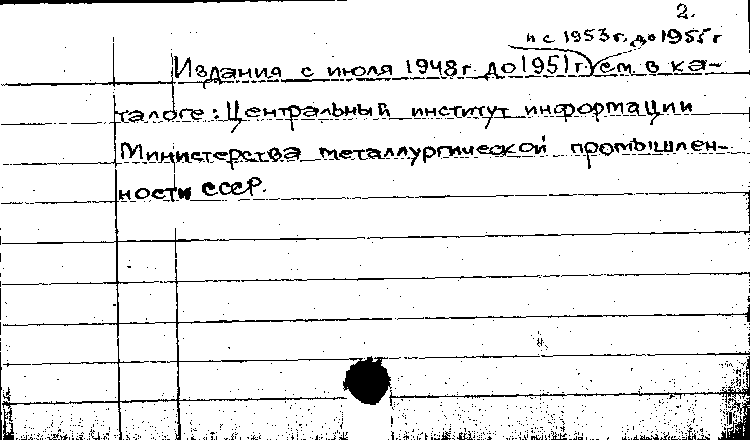 2.
и с 1953 г. до 1955 г
Издания с июля 1948 г. до 1951 г см. в ка-
талоге: Центральный институт информации
Министерства металлургической промышлен-
ности СССР.